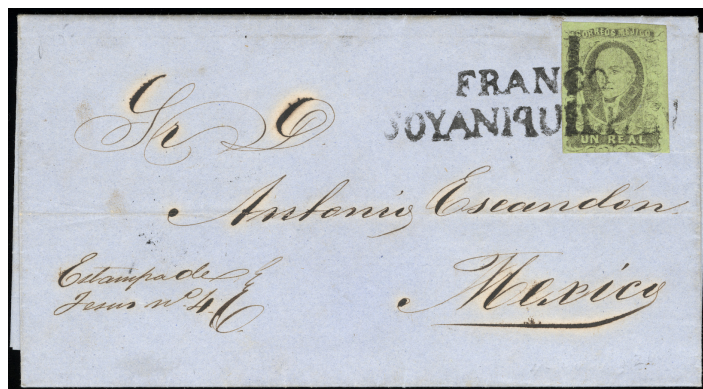 CORREOS MEXICO
UN REAL
FRANCO
SOYANIQUILPAN
Sr D
Antonio Escandón
Mexico
Estampa de
Jesus nº 4.